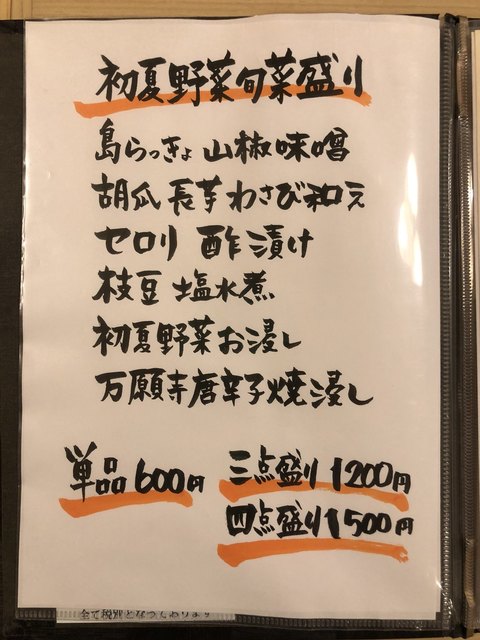 初夏野菜旬菜盛り
島らっきょ 山椒味噌
胡瓜 長芋 わさび和え
セロリ 酢漬け
枝豆 塩水煮
初夏野菜お浸し
万願寺唐辛子焼浸し
単品600円
三点盛り1200円
四点盛り1500円
全て税別となっております